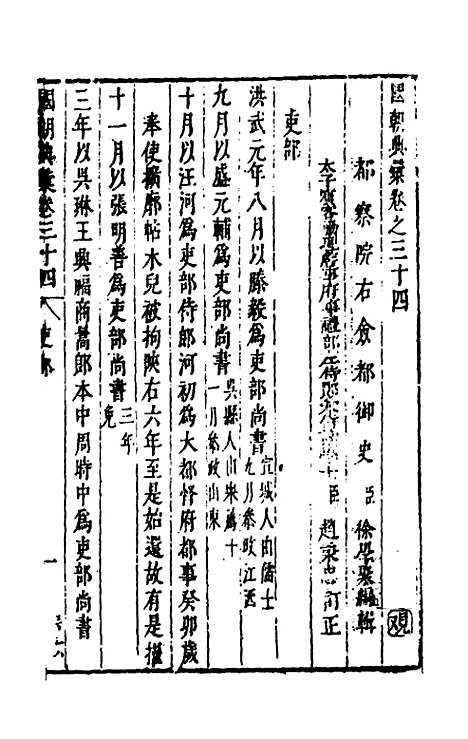 國朝典彙卷之三十四
都察院右僉都御史臣徐學聚編輯
太子賓客 詹事府事禮部左侍郎 臣趙秉忠訂正
吏部
洪武元年八月以滕毅為吏部尚書宣城人由儒士九月參政江西
九月以盛元輔為吏部尚書吳縣人由 薦十一月參政山東
十月以汪河為吏部侍郎河初為大都督府都事癸卯歲
奉使擴廓帖木兒被拘陝右六年至是始還故有是擢
十一月以張明善為吏部尚書三年免
三年以吳琳王興福商暠郎本中周時中為吏部尚書
國朝典彙卷三十四 吏部 一
观